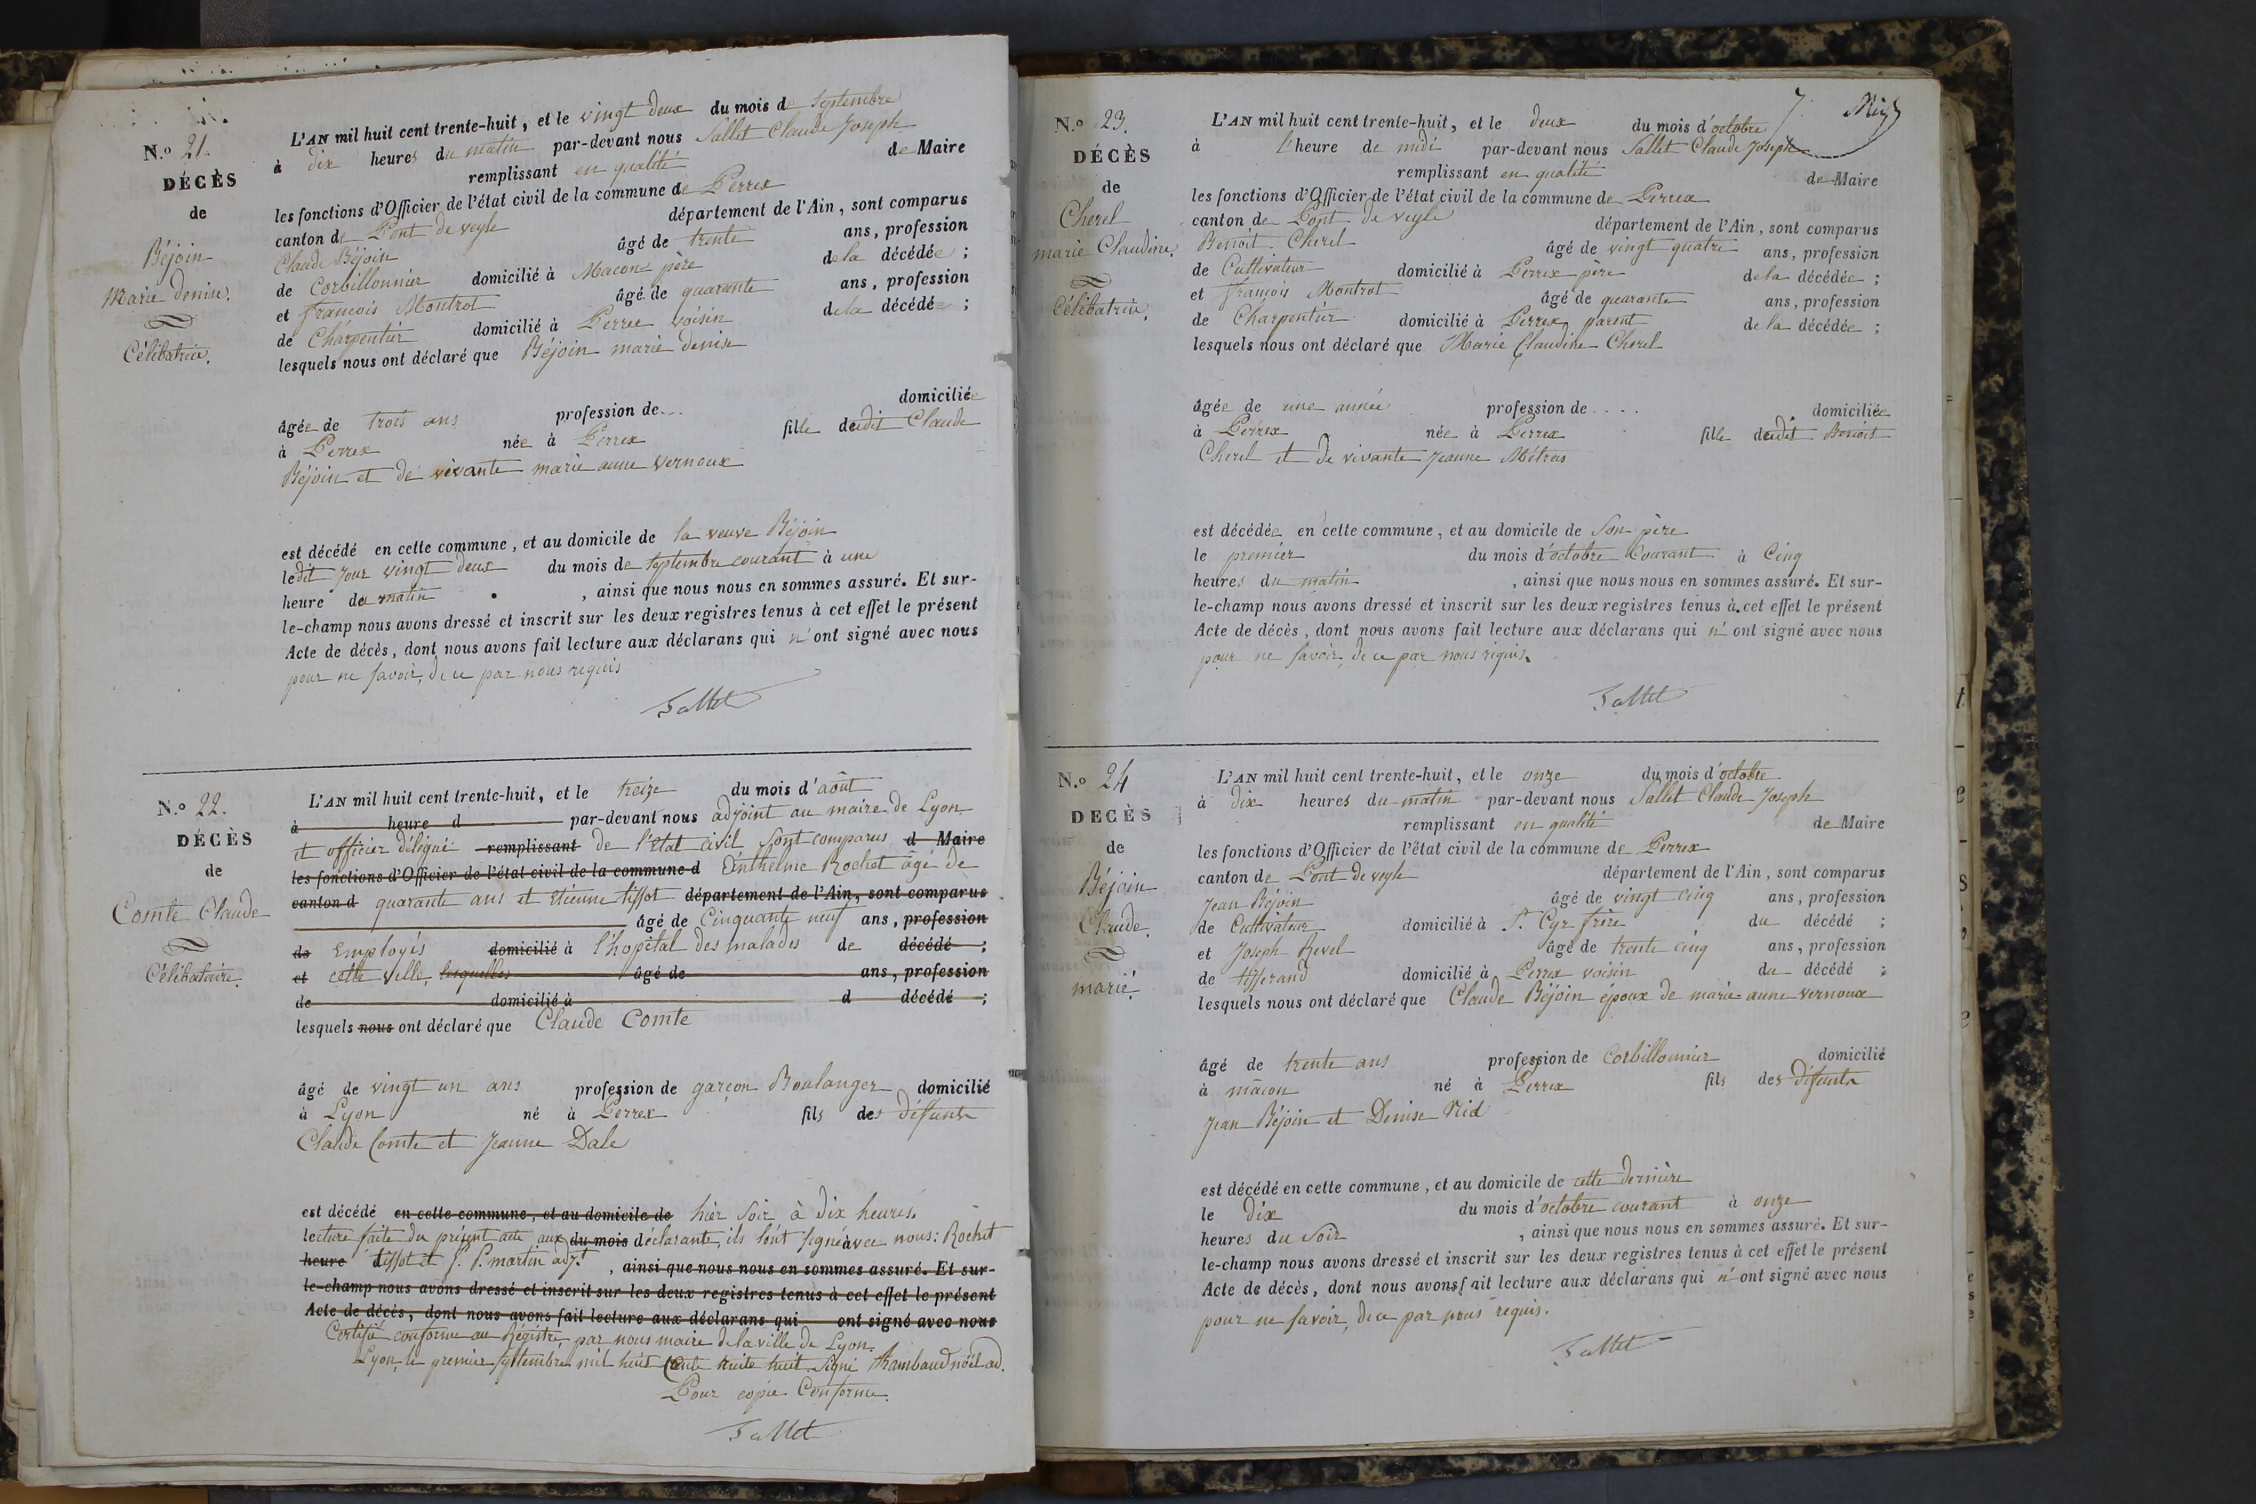 N.º 21.
DÉCÈS
de
Béjoin
Marie denise.
Célibatrice.
L'AN mil huit cent trente-huit, et le vingt deux du mois de Septembre
à dix heures du matin par-devant nous Sallet Claude Joseph
remplissant en qualité de Maire
les fonctions d'Officier de l'état civil de la commune de Perrex
canton de Pont de veyle département de l'Ain, sont comparus
Claude Béjoin âgé de trente ans, profession
de Corbillonnier domicilié à Macon père de la décédée ;
et françois Montrot âgé de quarante ans, profession
de Charpentier domicilié à Perrex voisin de la décédée ;
lesquels nous ont déclaré que Béjoin marie denise
âgée de trois ans profession de... domiciliée
à Perrex née à Perrex fille dudit Claude
Béjoin et de vivante marie anne Vernoux
est décédé en cette commune, et au domicile de la veuve Béjoin
ledit jour vingt deux du mois de Septembre courant à une
heure du matin , ainsi que nous nous en sommes assuré. Et sur-
le-champ nous avons dressé et inscrit sur les deux registres tenus à cet effet le présent
Acte de décès, dont nous avons fait lecture aux déclarans qui n'ont signé avec nous
pour ne savoir, de ce par nous requis
Sallet
N.º 22.
DÉCÈS
de
Comte Claude
Célibataire.
L'AN mil huit cent trente-huit, et le treize du mois d'août
à heure d par-devant nous adjoint au maire de Lyon
et officier délégué remplissant de l'état civil sont comparus d Maire
les fonctions d'Officier de l'état civil de la commune d Anthelme Rochet âge de
canton d quarante ans et Etienne tissot département de l'Ain, sont comparus
âgé de Cinquante neuf ans, profession
de Employés domicilié à l'hopital des malades de décédé ;
et cette ville, lesquelles âgé de ans, profession
de domicilié à d décédé ;
lesquels nous ont déclaré que Claude Comte
âgé de vingt un ans profession de garçon Boulanger domicilié
à Lyon né à Perrex fils des défunts
Claude Comte et Jeanne Dale
est décédé en cette commune, et au domicile de hier soir à dix heures.
lecture faite du présent acte aux du mois déclarants, ils l'ont signé avec nous: Rochet
heure tissot et J. P. martin adj.t , ainsi que nous nous en sommes assuré. Et sur-
le-champ nous avons dressé et inscrit sur les deux registres tenus à cet effet le présent
Acte de décès, dont nous avons fait lecture aux déclarans qui ont signé avec nous
Certifié conforme au Régistre par nous maire de la ville de Lyon.
Lyon, le premier septembre mil huit cent trente huit. Signé Rambaud noël ad.
Pour copie Conforme.
Sallet
7.
N.º 23.
DÉCÈS
de
Cherel
marie Claudine.
Célibatrice.
L'AN mil huit cent trente-huit, et le deux du mois d'octobre
à l'heure de midi par-devant nous Sallet Claude Joseph
remplissant en qualité de Maire
les fonctions d'Officier de l'état civil de la commune de Perrex
canton de Pont de veyle département de l'Ain, sont comparus
Benoit Cherel âgé de vingt quatre ans, profession
de Cultivateur domicilié à Perrex père de la décédée ;
et françois Montrot âgé de quarante ans, profession
de Charpentier domicilié à Perrex, parent de la décédée ;
lesquels nous ont déclaré que Marie Claudine Cherel
âgée de une année profession de .... domiciliée
à Perrex née à Perrex fille dudit Benoit
Cherel et de vivante Jeanne Métras
est décédée en cette commune, et au domicile de son père
le premier du mois d'octobre Courant à Cinq
heures du matin , ainsi que nous nous en sommes assuré. Et sur-
le-champ nous avons dressé et inscrit sur les deux registres tenus à cet effet le présent
Acte de décès, dont nous avons fait lecture aux déclarans qui n'ont signé avec nous
pour ne savoir, de ce par nous requis.
Sallet
N.º 24
DECÈS
de
Béjoin
Claude.
marié.
L'AN mil huit cent trente-huit, et le onze du mois d'octobre
à dix heures du matin par-devant nous Sallet Claude Joseph
remplissant en qualité de Maire
les fonctions d'Officier de l'état civil de la commune de Perrex
canton de Pont de veyle département de l'Ain, sont comparus
Jean Béjoin âgé de vingt cinq ans, profession
de Cultivateur domicilié à St. Cyr frère du décédé ;
et Joseph Revel âgé de trente cinq ans, profession
de tisserand domicilié à Perrex voisin du décédé ;
lesquels nous ont déclaré que Claude Béjoin époux de marie anne Vernoux
âgé de trente ans profession de Corbillonnier domicilié
à mâcon né à Perrex fils des défunts
Jean Béjoin et Denise Nid
est décédé en cette commune, et au domicile de cette dernière
le dix du mois d'octobre courant à onze
heures du soir , ainsi que nous nous en sommes assuré. Et sur-
le-champ nous avons dressé et inscrit sur les deux registres tenus à cet effet le présent
Acte de décès, dont nous avons fait lecture aux déclarans qui n'ont signé avec nous
pour ne savoir, de ce par nous requis.
Sallet